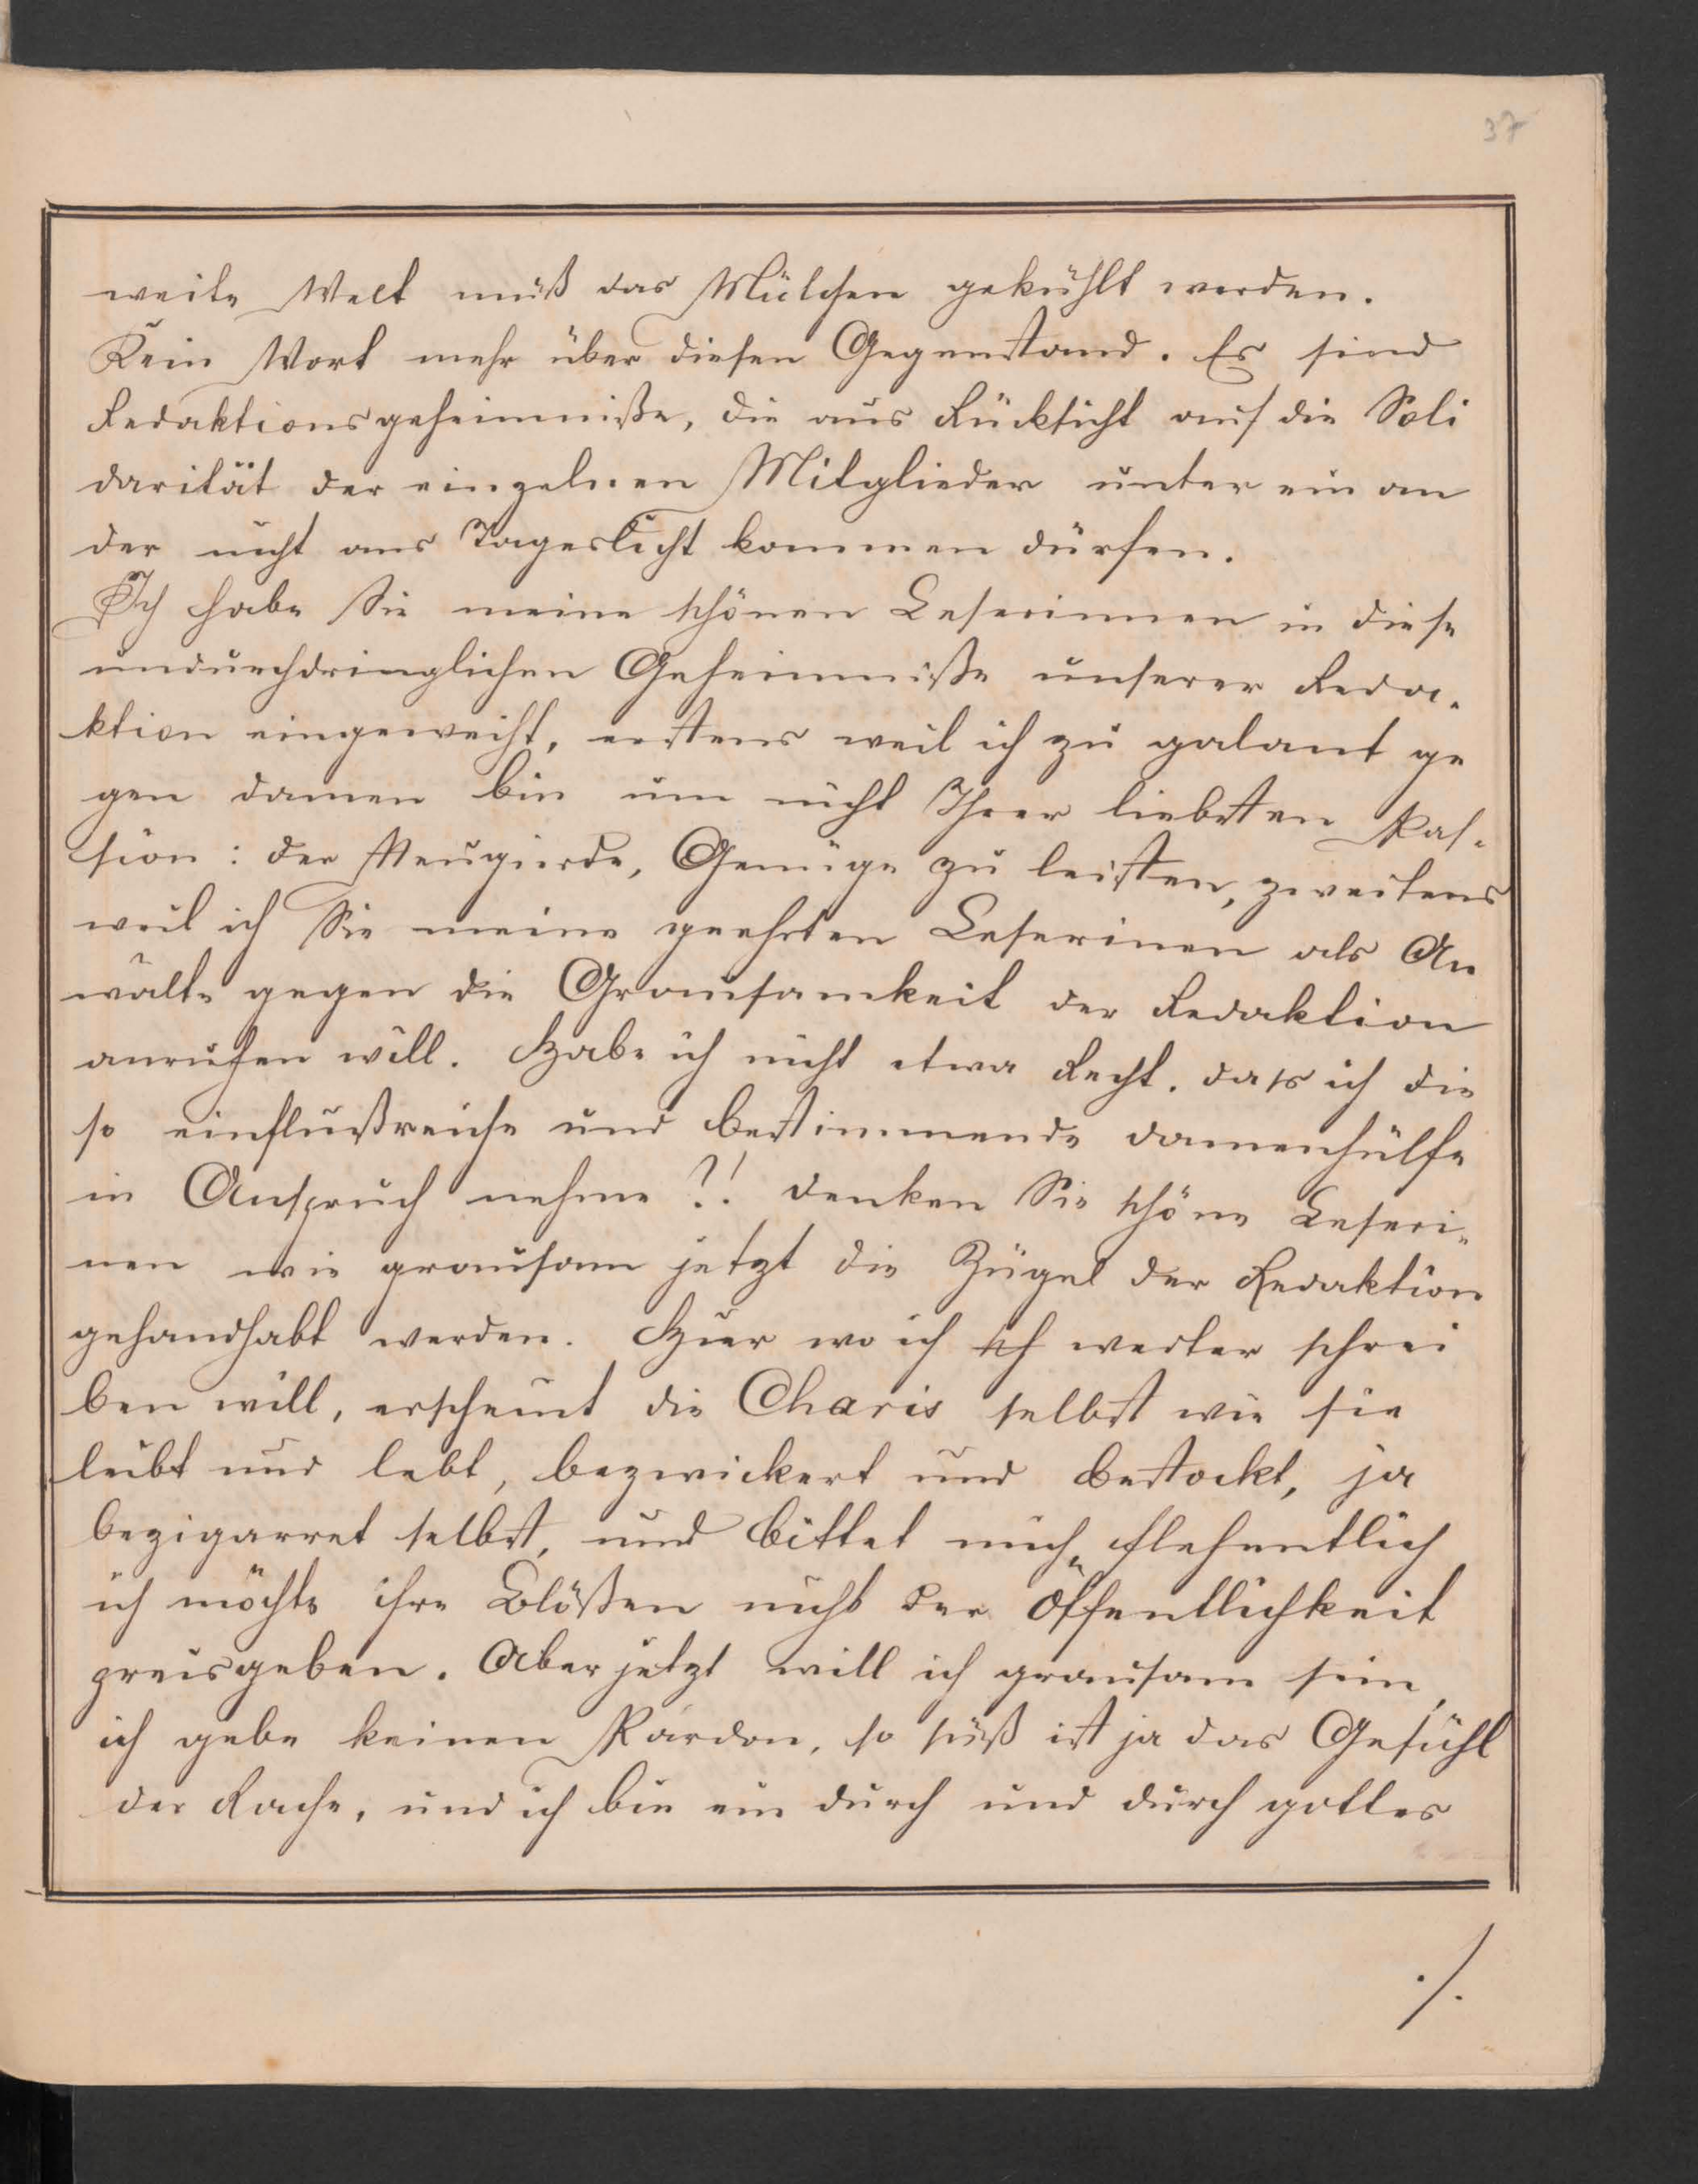 37
weite Welt muß das Mütchen gekühlt werden.
Kein Wort mehr über diesen Gegenstand. Es sind
Redaktionsgeheimniße, die aus Rücksicht auf die Soli
darität der einzelnen Mitglieder unter ein an
der nicht ans Tageslicht kommen dürfen.
Ich habe Sie meine schönen Leserinnen in diese
undurchdringlichen Geheimniße unserer Reda-
ktion eingeweiht, erstens weil ich zu galant ge
gen damen bin um nicht Ihrer liebsten Pas-
sion: der Neugierde, Genüge zu leisten, zweitens
weil ich Sie meine geehrten Leserinen als An
wälte gegen die Grausamkeit der Redaktion
anrufen will. Habe ich nicht etwa Recht. dass ich die
so einflußreiche und bestimmende damenhülfe
in Anspruch nehme ?! denken Sie schöne Leseri-
nen wie grausam jetzt die Zügel der Redaktion
gehandhabt werden. Hier wo ich weiter schrei
ben will, erscheint die Charis selbst wie sie
leibt und lebt, bezwickert und bestockt, ja
bezigarret selbst, und bittet mich flehentlich
ich möchte ihre Blößen nicht der Öffentlichkeit
preisgeben. Aber jetzt will ich grausam sein,
ich gebe keinen Pardon, so süß ist ja das Gefühl
der Rache, und ich bin ein durch und durch gottes
./.